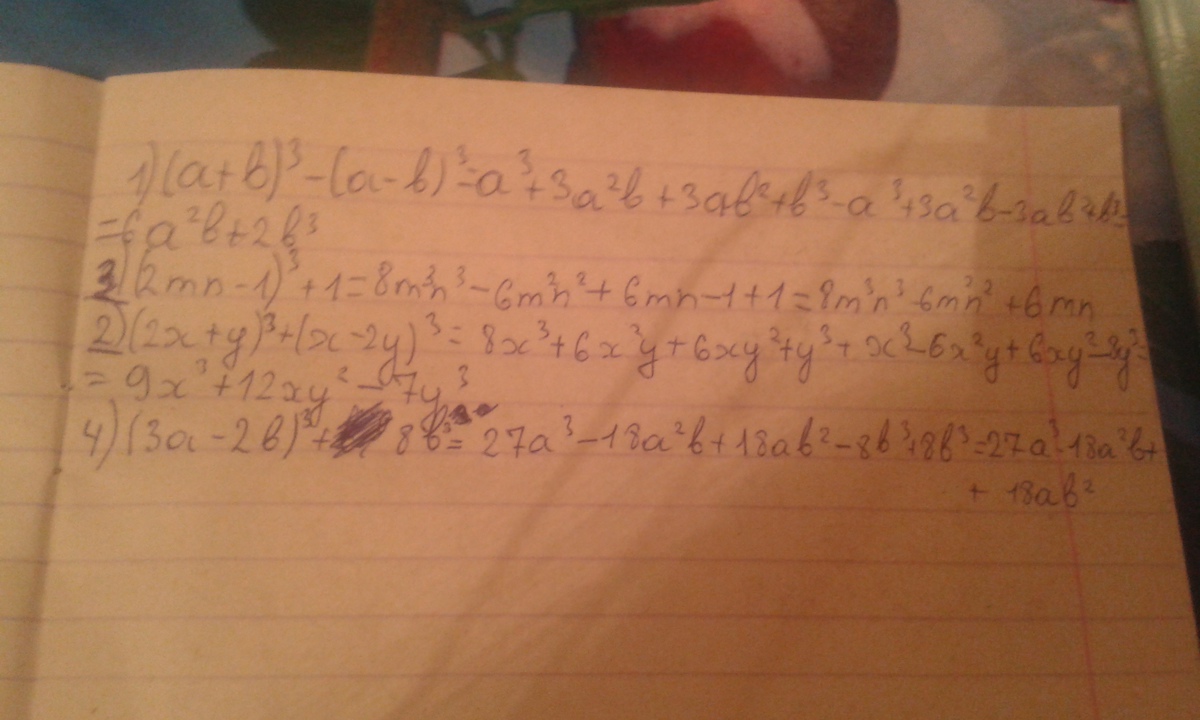 1) (a+b)³-(a-b)³=a³+3a²b+3ab²+b³-a³+3a²b-3ab²+b³=
=6a²b+2b³
3) (2mn-1)³+1=8m³n³-6m²n²+6mn-1+1=8m³n³-6m²n²+6mn
2) (2x+y)³+(x-2y)³=8x³+6x²y+6xy²+y³+x³-6x²y+6xy²-8y³=
=9x³+12xy²-7y³
4) (3a-2b)³+8b³=27a³-18a²b+18ab²-8b³+8b³=27a³-18a²b+
+18ab²